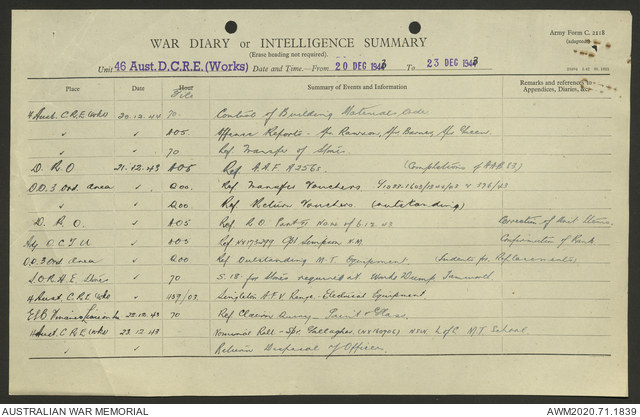 Army Form C. 2118
(adapted)
WAR DIARY or INTELLIGENCE SUMMARY
(Erase heading not required).
Unit 46 Aust. D.C.R.E. (Works) Date and Time.—From 20 DEC 1943 To 23 DEC 1943
Place Date Hour Summary of Events and Information Remarks and references to Appendices, Diaries, &c.
File
4 Aust. C.R.E (Works) 20.12.44 70. Control of Building Materials
" A05. Offence Reports - Spr Rawson, Spr Barnes, Spr
" 70 Ref Transfer of Stores.
D.R.O 21.12.43 A05 Ref A.A.F. A2565. (Completions of AAB 83)
O.O. 3 Ord. Area " Q00. Ref Transfer Vouchers
" Q00 Ref Return Vouchers (outstanding)
D.R.O. " A05 Ref R.O. Part II No 20 of 6.12.43 Correction of Unit
Adj O.C.T.U " A05 Ref NX173299 Cpl Simpson K.M. Confirmation of Rank
O.O. 3 Ord. Area " Q00 Ref Outstanding M.T Equipment. (Indents for Replacements)
Stores " 70. S.18. for Stores required at Works Dump Tamworth
4 Aust. C.R.E (Works) " 439/03. Singleton A.F.V. Range - Electrical Equipment.
22.12.43 70 Ref
4 Aust. C.R.E. (Works) 23.12.43 Nominal Roll - Spr. Gallagher (NX160706) N.S.W. L of C M.T School
" " Return Disposal of Officers.
AUSTRALIAN WAR MEMORIAL AWM2020.71.1839